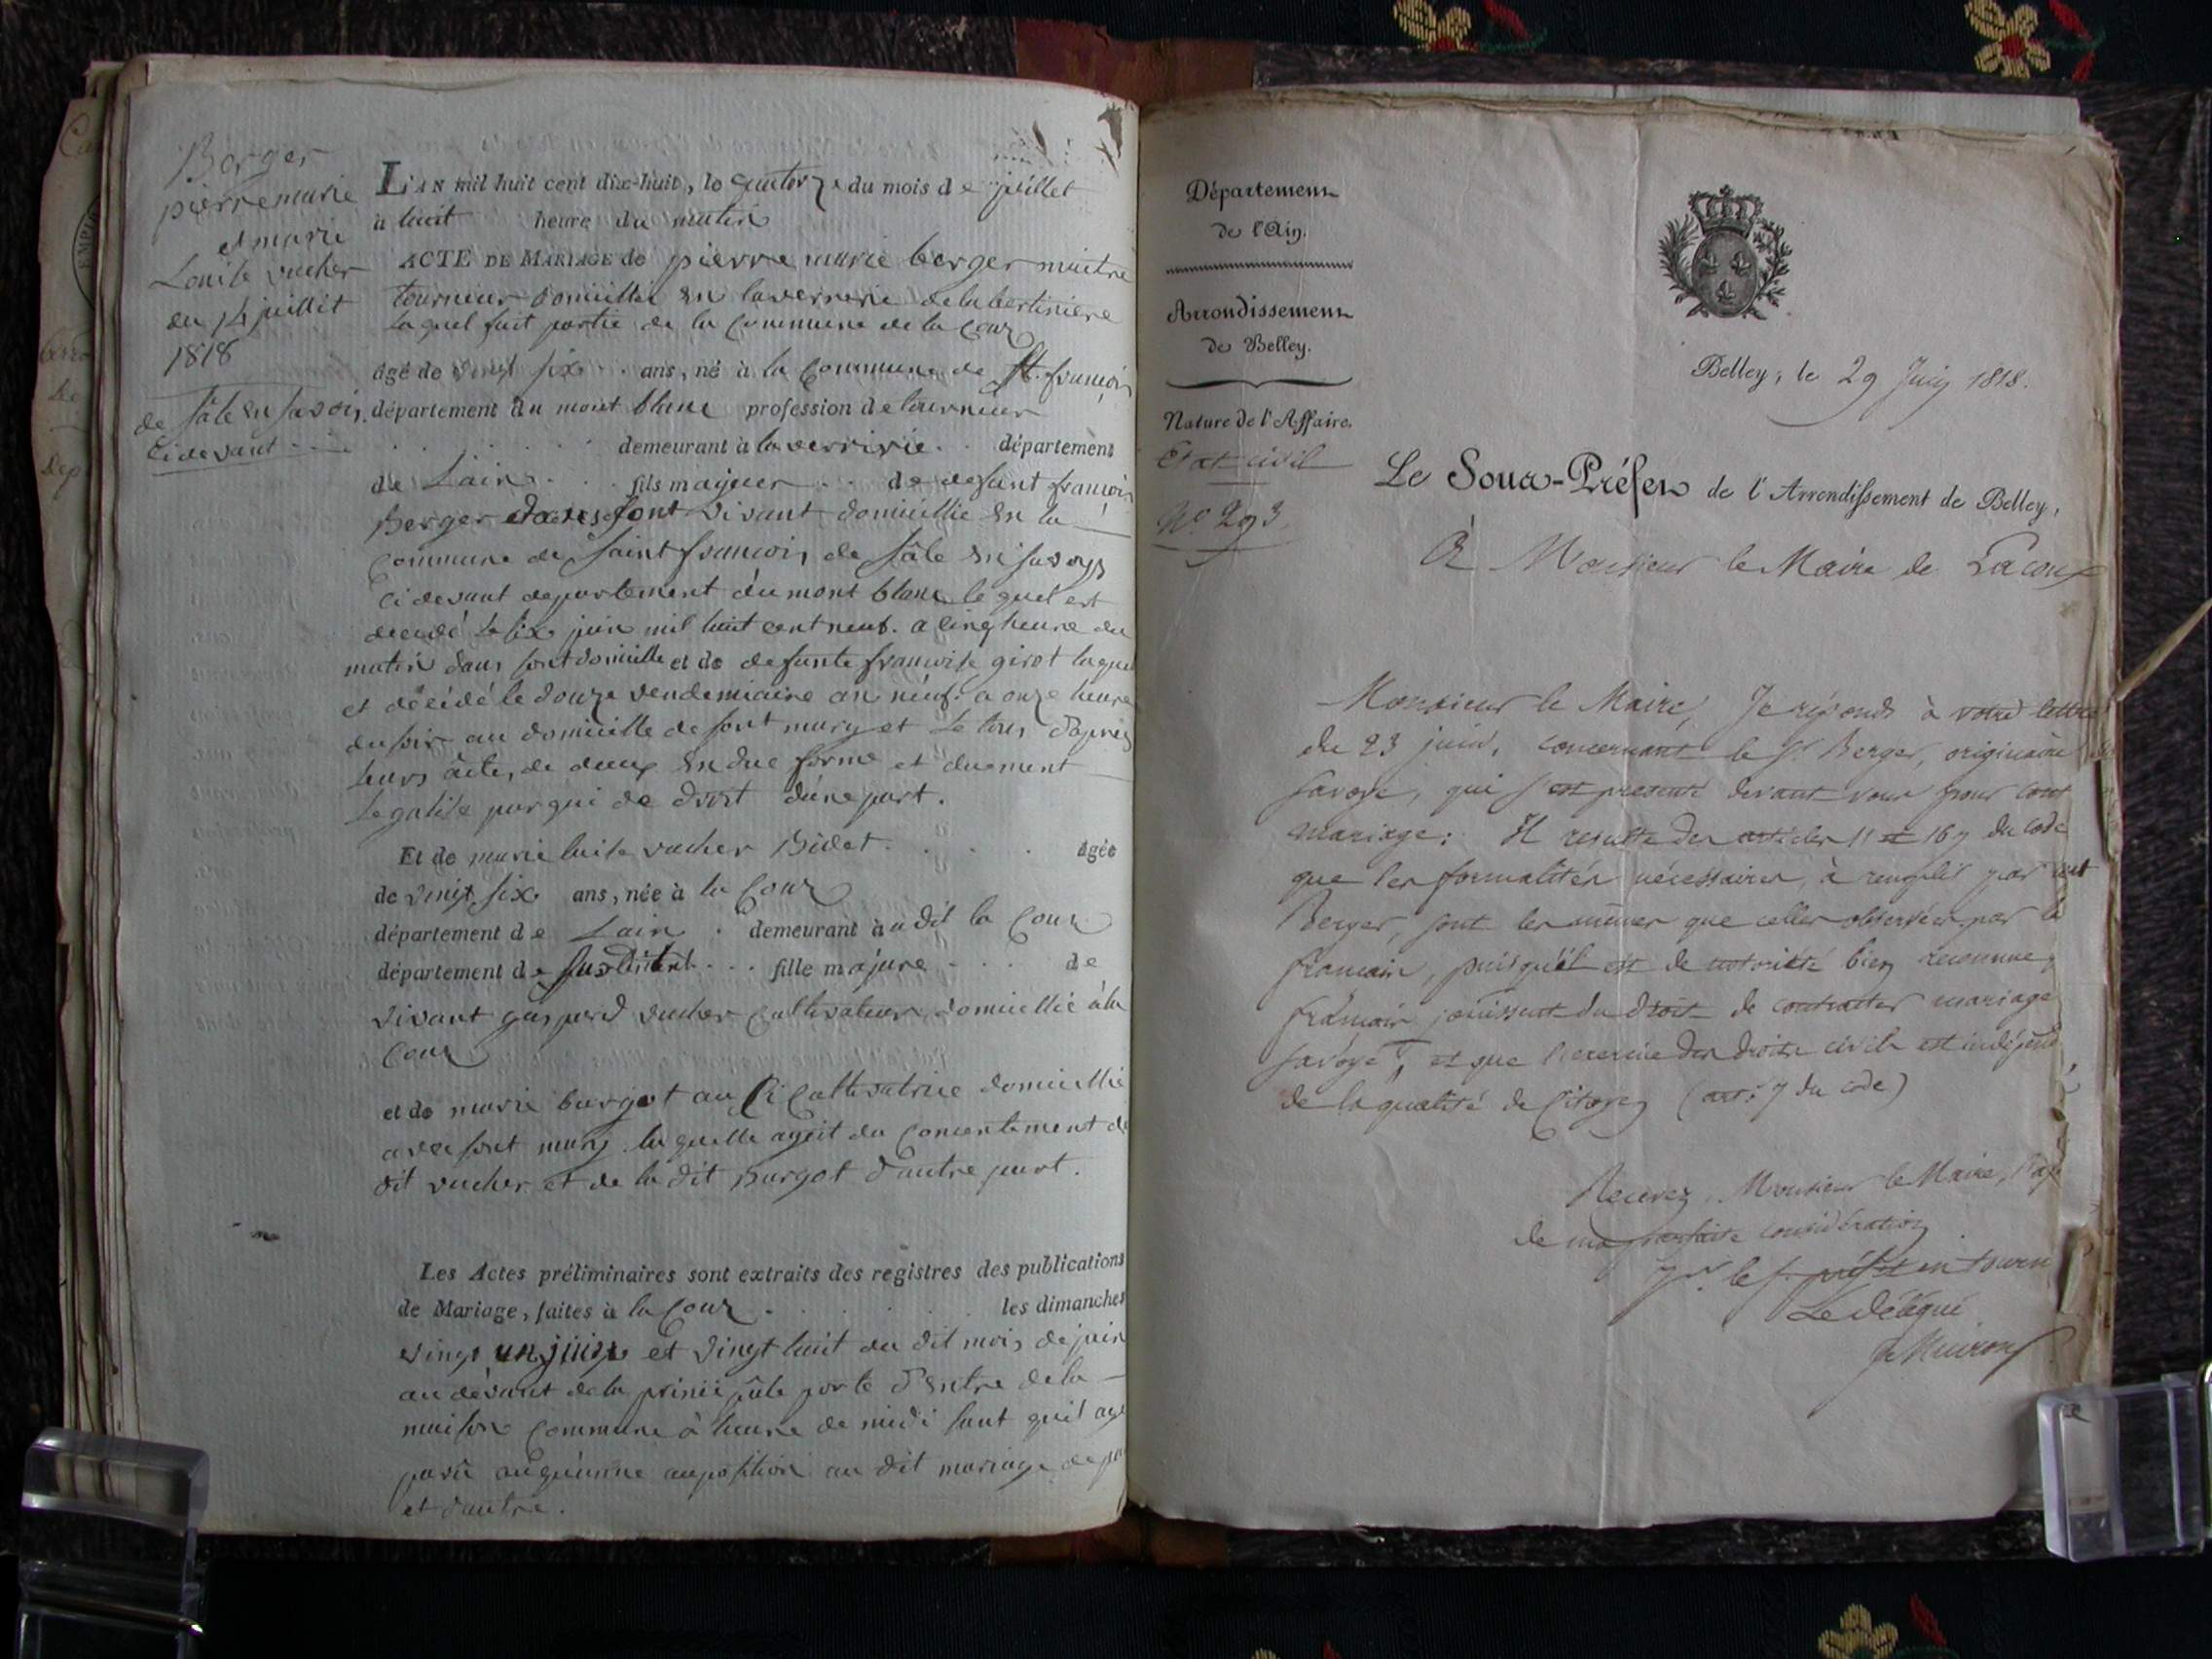 Berger
pierre marie
et marie
Louise vucher
du 14 juillet
1818
de sâle en savois
Ci devant
L'AN mil huit cent dix-huit, le quatorze du mois de juillet
à huit heure du matin
ACTE DE MARIAGE de pierre marie berger maitre
tourneur domicillie en la verrerie de la bertiniere
laquel fait partie de la Commune de la Coux
âgé de vingt six ans, né à la Commune de st. françois
département du mont blanc profession de tourneur
demeurant à la verririe département
de Lain fils majeur de defunt françois
Berger vivant domicillie en la
Commune de saint francois de sâle en savoys
Ci devant departement du mont blanc le quel est
decedé le six juin mil huit cent neuf. a cinq heure du
matin dans sont domicille et de defunte francoise girot laquel
et décédé le douze vendemiaire an neuf. a onze heure
du soir au domicille de sont mary et le tous d'apres
leurs âctes de deux en due forme et duement
legalise par qui de droit d'une part.
Et de marie luise vucher Bidet âgée
de vingt six ans, née à la Coux
département de Lain demeurant à u dit la Coux
département de susditent fille majure de
vivant gaspard vucher Cultivateur domicillié à la
Coux
et de marie burgot au Ci Cultivatrice domicillie
avec sont mary la quelle ageit du Consentement du
dit vucher et de la dit Burgot d'autre part.
Les Actes préliminaires sont extraits des registres des publications
de Mariage, faites à la Coux les dimanches
vingt un juin et vingt huit du dit mois de juin
au dévant de la principâle porte d'entre de la
maison Commune à heure de midi sant qu'il aye
parû auqu'unne auposition au dit mariage de pa
et d'autre.
Département
de l'Ain.
Arrondissement
de Belley.
Nature de l'Affaire.
Etat civil
N° 293
Belley, le 29 Juin 1818.
Le Sous-Préfet de l'Arrondissement de Belley,
A Monsieur le Maire de Lacoux
Monsieur le Maire, Je réponds à votre lettre
du 23 juin, concernant le Sr Berger, originaire
savoye, qui s'est présenté devant vous pour cont
mariage: Il resulte des articles 11 et 167 du code
que les formalités nécessaires, à remplir par cet
Berger, sont les mêmes que celles observées par le
francais, puisqu'il est de notoriété bien reconnue
francais jouissent du droit de contracter mariage
savoye, et que l'exercice des droits civils est indépend
de la qualité de Citoyen (art: 7 du code)
Recevez, Monsieur le Maire, l'ass
de ma parfaite considération
Pr. le s. préfet en tourn
Le délégué